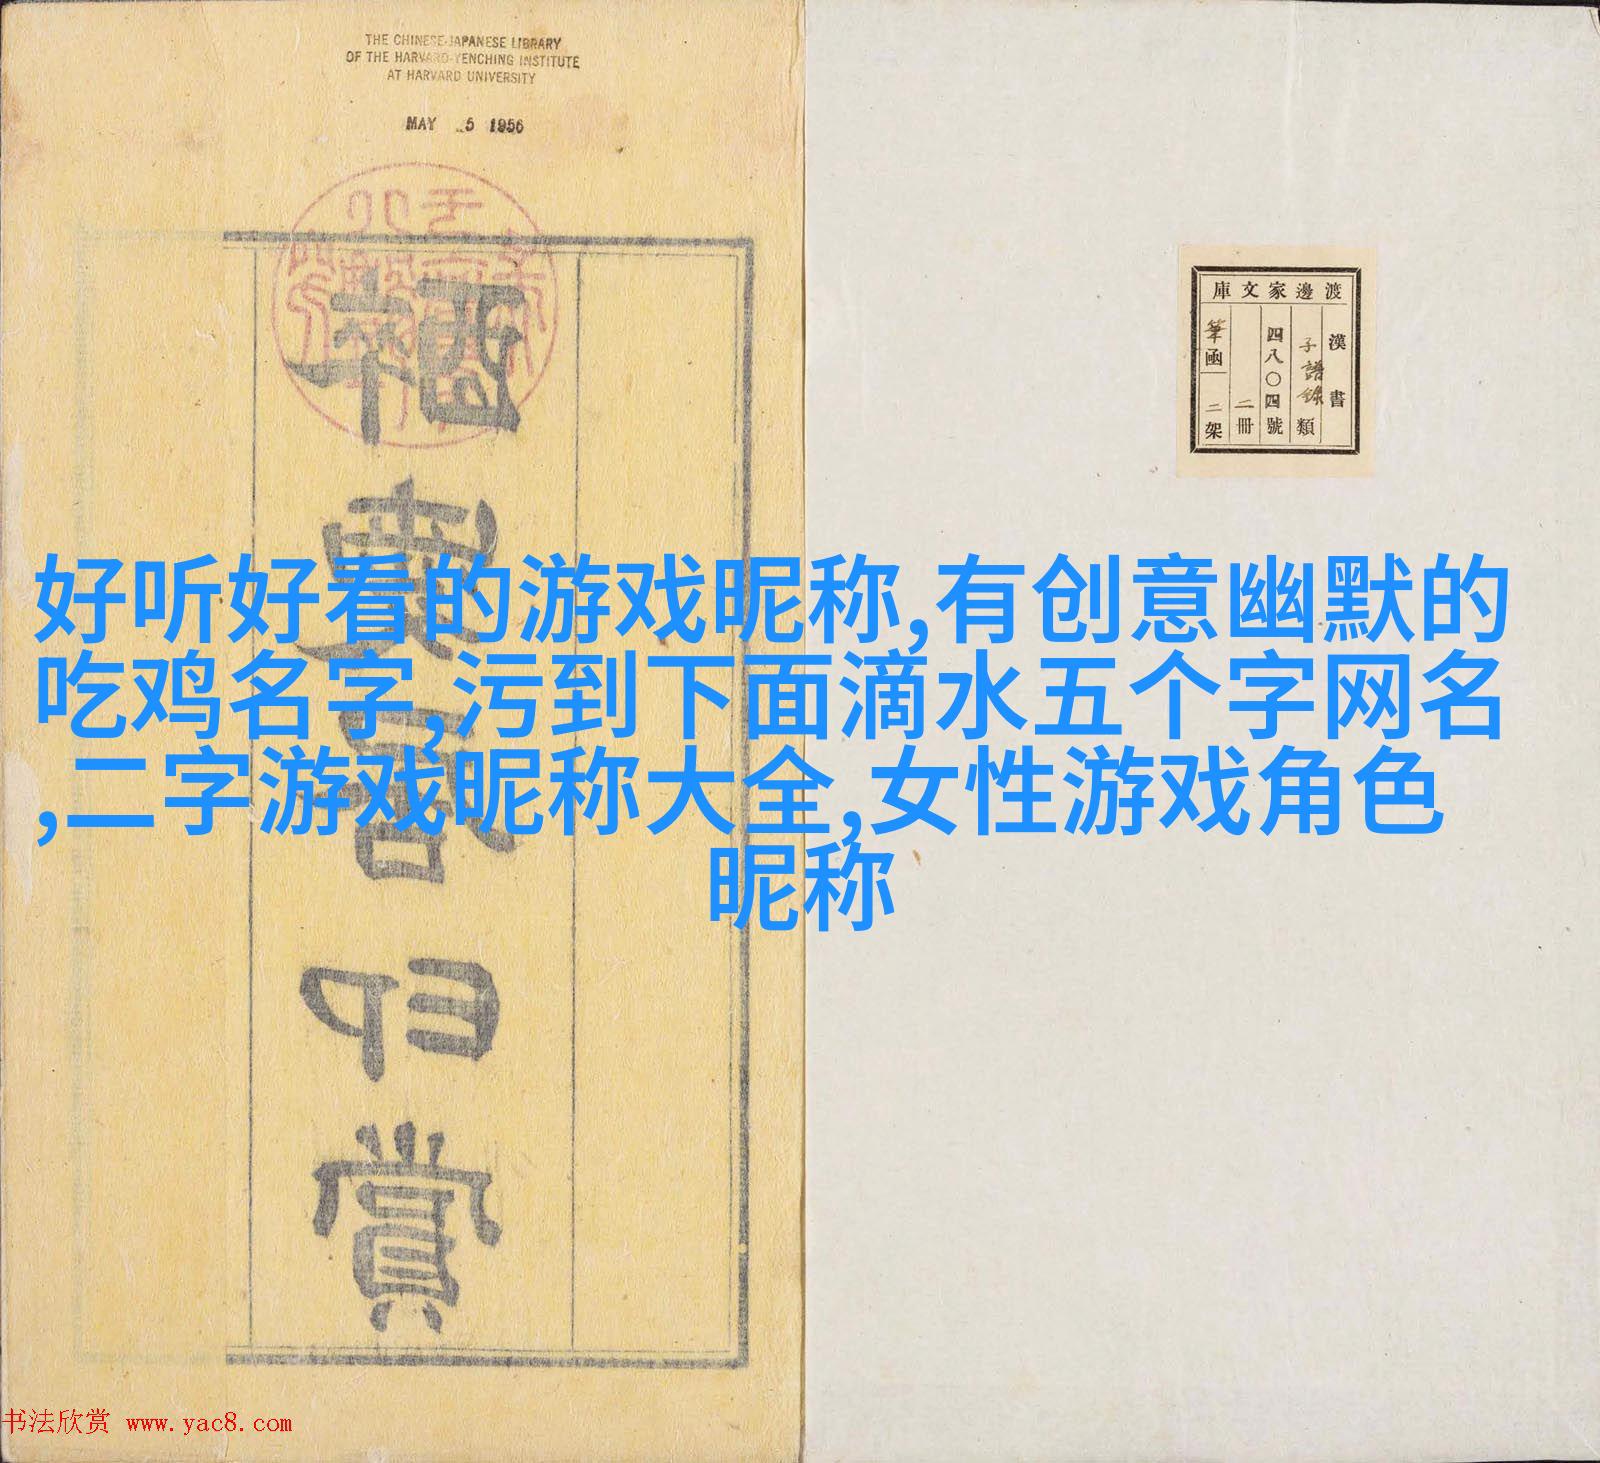 THE CHINESE-JAPANESE LIBRARY
OF THE HARVARD-YENCHING INSTITUTE
AT HARVARD UNIVERSITY
MAY 5 1956
渡邊家文庫
漢書
子譜錄類
四八〇四號
二冊
筆函二架
好听好看的游戏昵称,有创意幽默的
吃鸡名字,污到下面滴水五个字网名
,二字游戏昵称大全,女性游戏角色
昵称
賞
书法欣赏 www.yac8.com